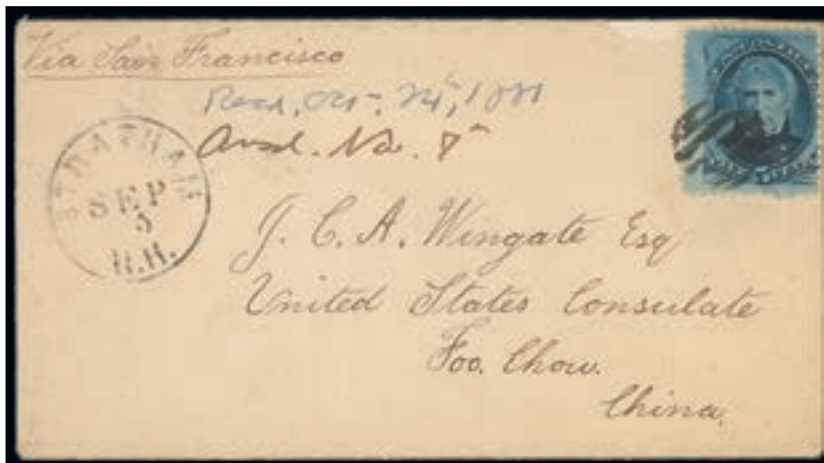 Via San Francisco
Recd. Oct. 24th, 1881
Ansd. No. 8th
STRATHAM
SEP
5
N.H.
J. C. A. Wingate Esq
United States Consulate
Foo. Chow.
China.